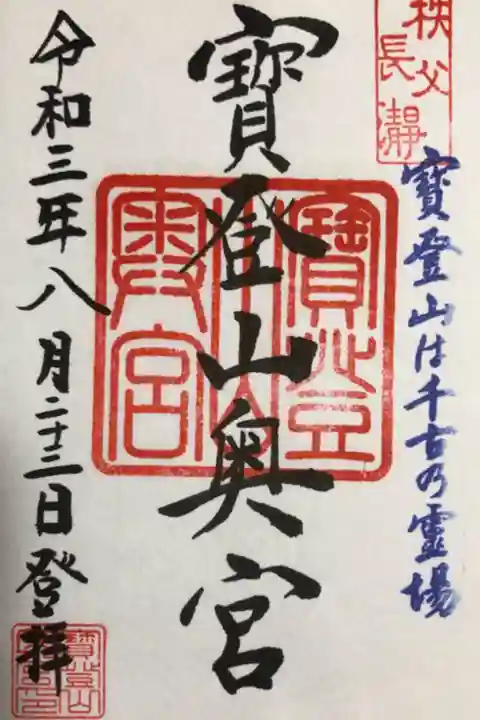 秩父
長瀞
寳登山は千古の霊場
寳登山奥宮
寳登山
奥宮
令和三年八月二十三日登拝